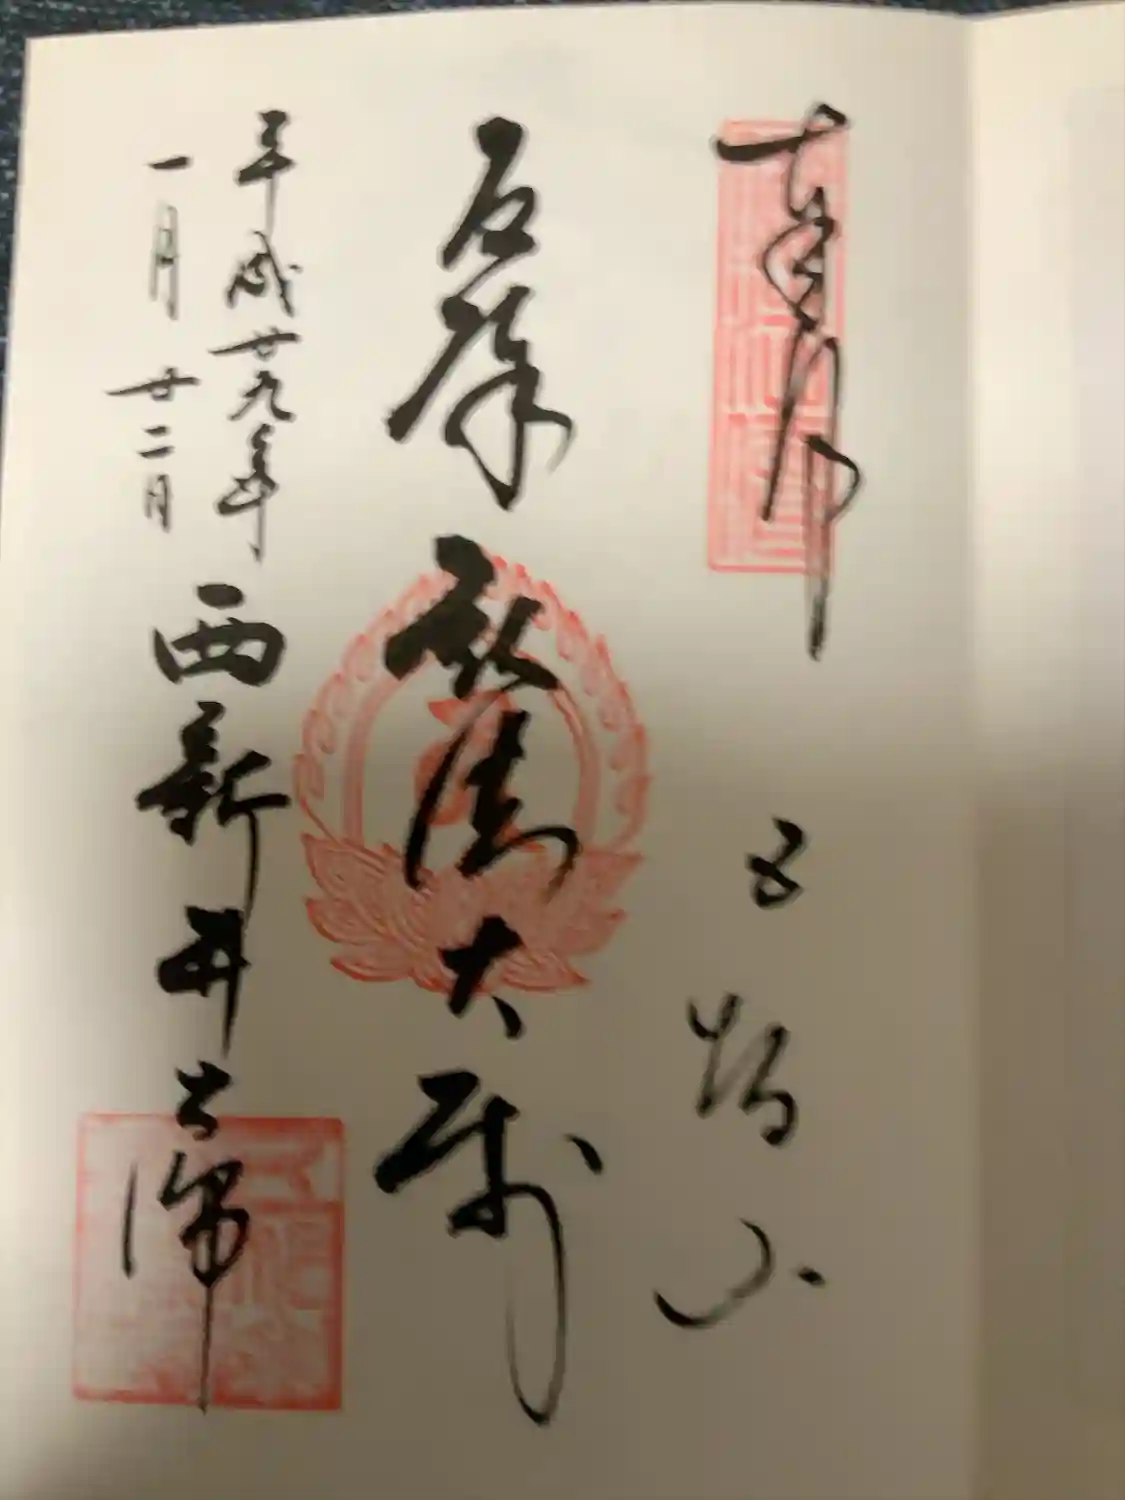 奉拝 五智山
厄除 弘法大師
平成廿九年
一月廿二日
西新井大師